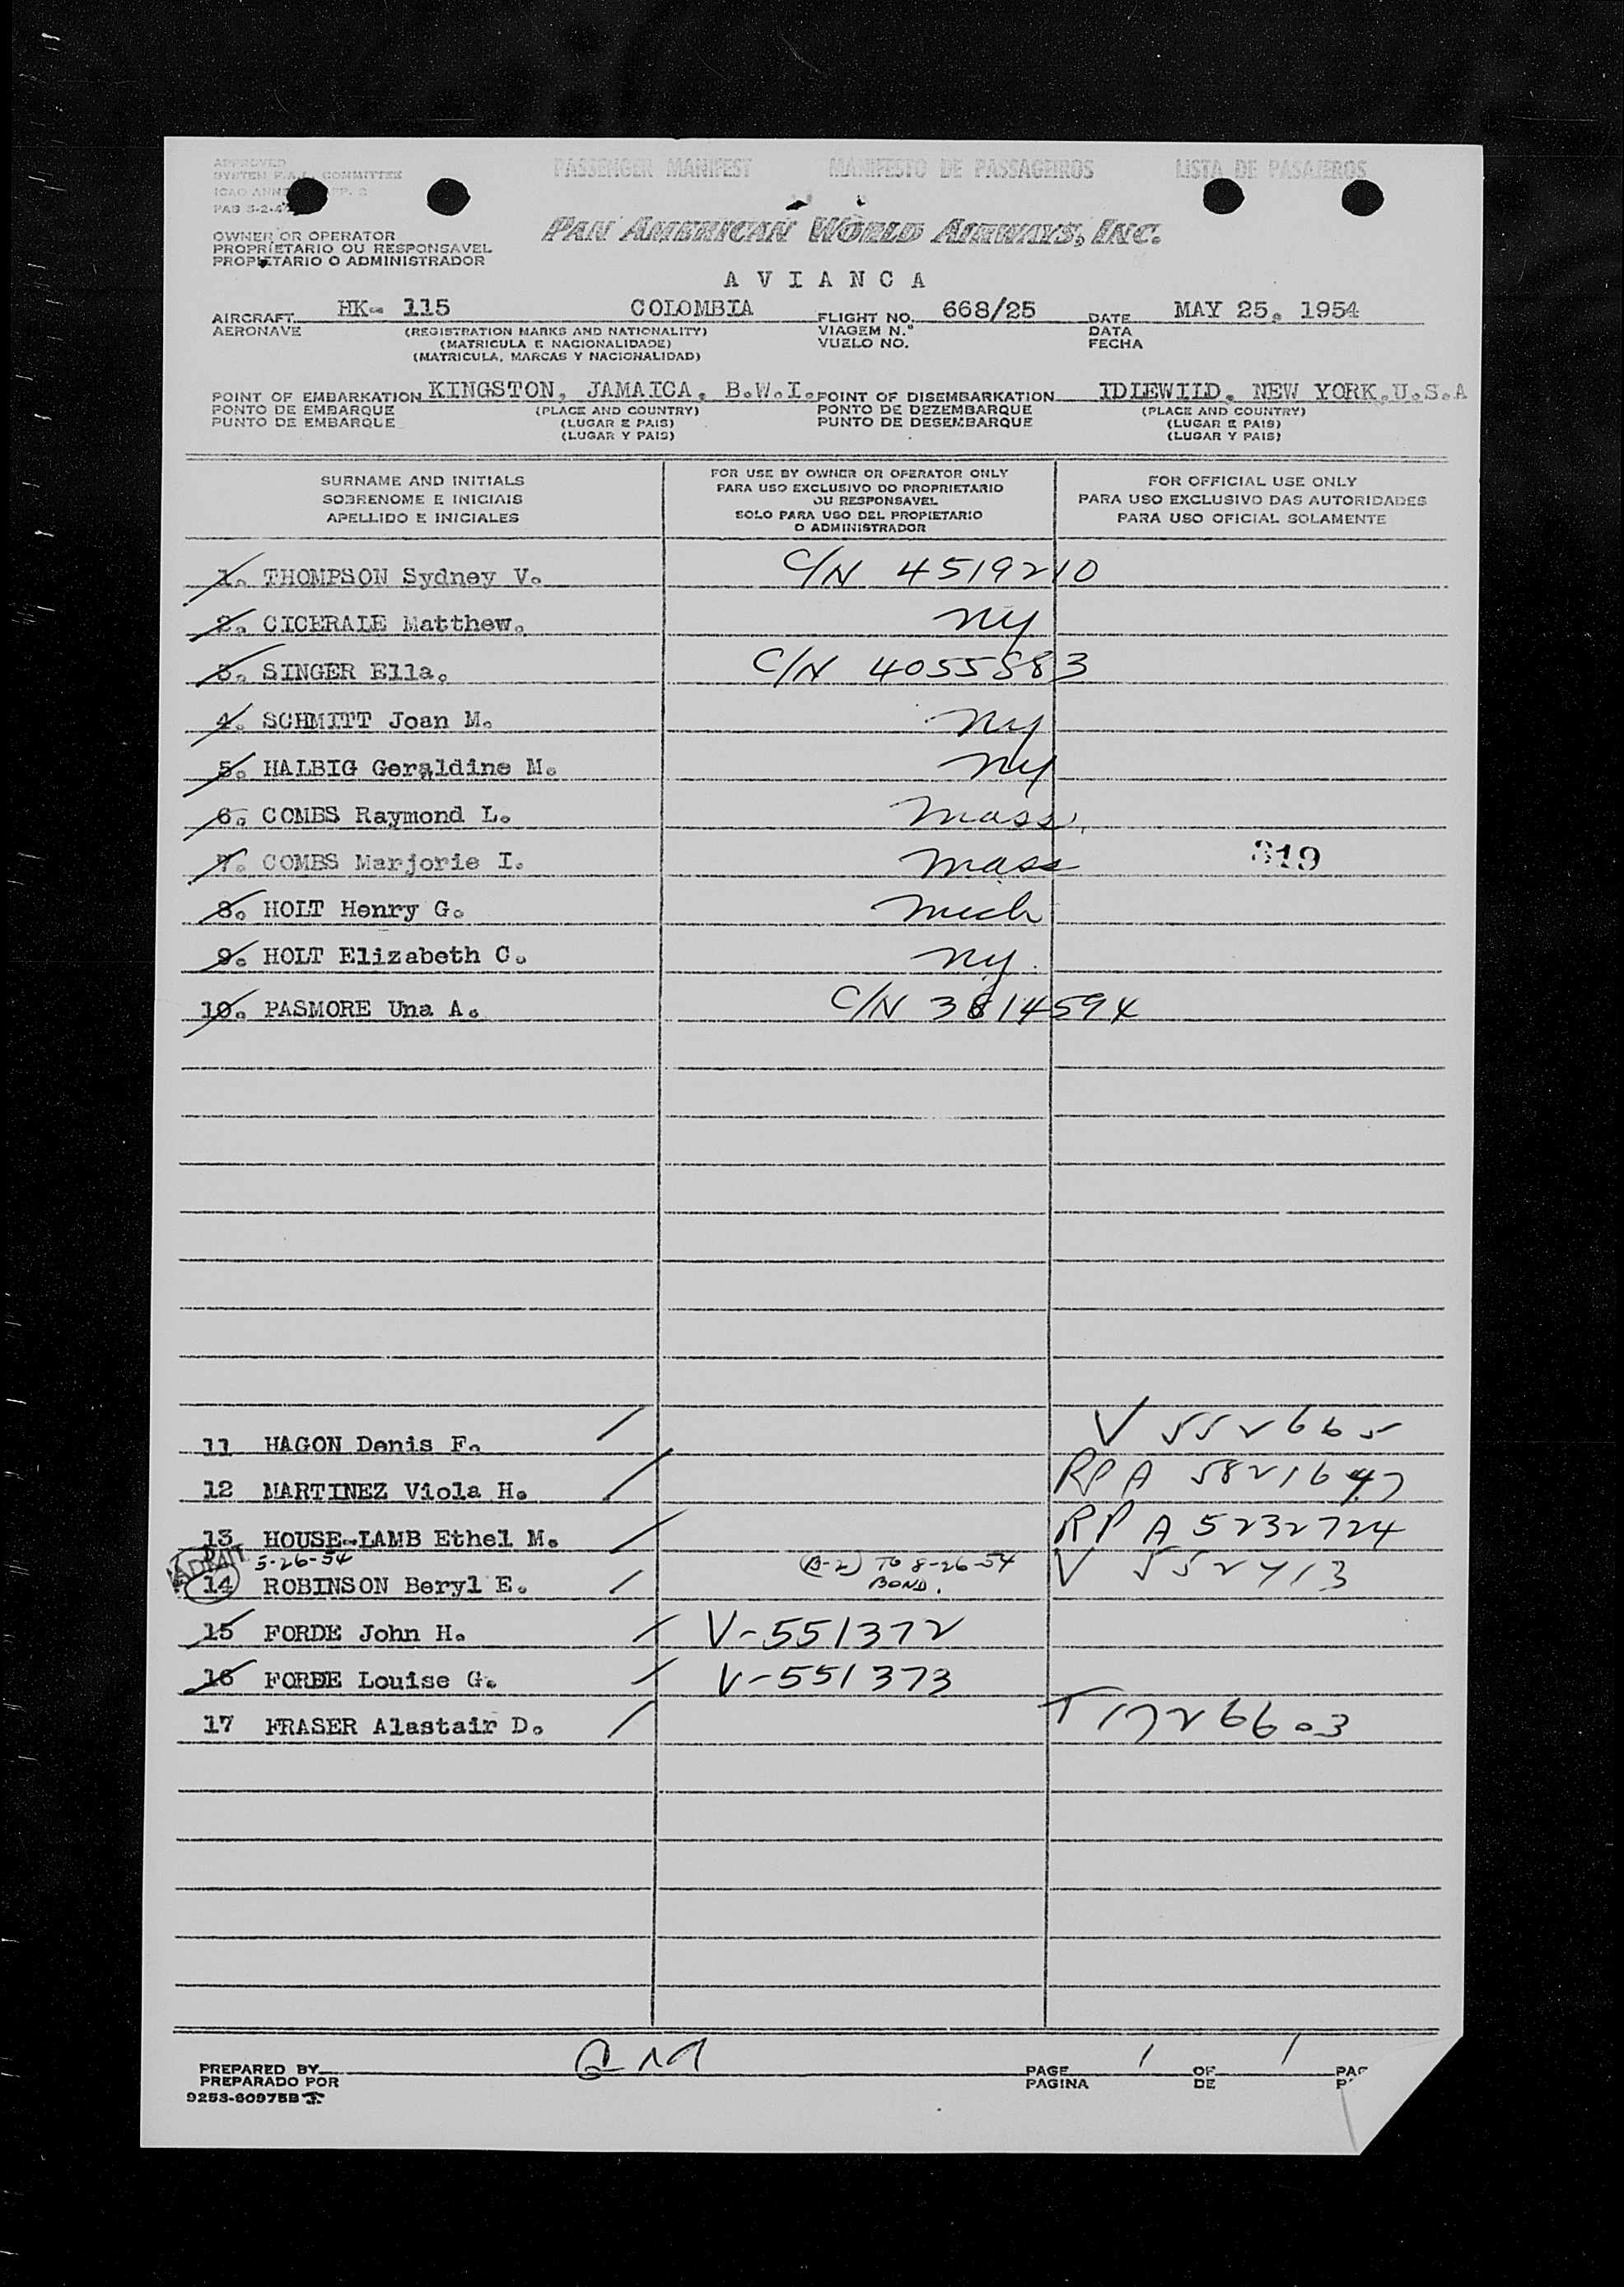 APPROVED
SYSTEM F.A.L. COMMITTEE
PASSENGER MANIFEST MANIFESTO DE PASSAGEIROS LISTA DE PASAJEROS
OWNER OR OPERATOR
PROPRIETARIO OU RESPONSAVEL
PROPIETARIO O ADMINISTRADOR
PAN AMERICAN WORLD AIRWAYS, INC.
A V I A N C A
AIRCRAFT HK- 115 COLOMBIA FLIGHT NO. 668/25 DATE MAY 25. 1954
AERONAVE (REGISTRATION MARKS AND NATIONALITY) VIAGEM N.º DATA
(MATRICULA E NACIONALIDADE) VUELO NO. FECHA
(MATRICULA, MARCAS Y NACIONALIDAD)
POINT OF EMBARKATION KINGSTON, JAMAICA, B.W.I. POINT OF DISEMBARKATION IDLEWILD, NEW YORK,U.S.A
PONTO DE EMBARQUE (PLACE AND COUNTRY) PONTO DE DEZEMBARQUE (PLACE AND COUNTRY)
PUNTO DE EMBARQUE (LUGAR E PAIS) PUNTO DE DESEMBARQUE (LUGAR E PAIS)
(LUGAR Y PAIS) (LUGAR Y PAIS)
SURNAME AND INITIALS FOR USE BY OWNER OR OPERATOR ONLY FOR OFFICIAL USE ONLY
SOBRENOME E INICIAIS PARA USO EXCLUSIVO DO PROPRIETARIO PARA USO EXCLUSIVO DAS AUTORIDADES
OU RESPONSAVEL
APELLIDO E INICIALES SOLO PARA USO DEL PROPIETARIO PARA USO OFICIAL SOLAMENTE
O ADMINISTRADOR
1. THOMPSON Sydney V. C/N 4519210
2. CICERALE Matthew. ny
3. SINGER Ella. C/N 4055883
4. SCHMITT Joan M. ny
5. HALBIG Geraldine M. ny
6. COMBS Raymond L. mass.
7. COMBS Marjorie I. mass 319
8. HOLT Henry G. mich
9. HOLT Elizabeth C. ny.
10. PASMORE Una A. C/N 3814594
11 HAGON Denis F. V 552665
12 MARTINEZ Viola H. RP A 5821647
13 HOUSE-LAMB Ethel M. RP A 5232724
ADMIT 5-26-54 (B-2) TO 8-26-54
14 ROBINSON Beryl E. BOND. V 552413
15 FORDE John H. V-551372
16 FORDE Louise G. V-551373
17 FRASER Alastair D. T 1726603
PREPARED BY PAGE 1 OF 1
PREPARADO POR PAGINA DE
9253-60975B